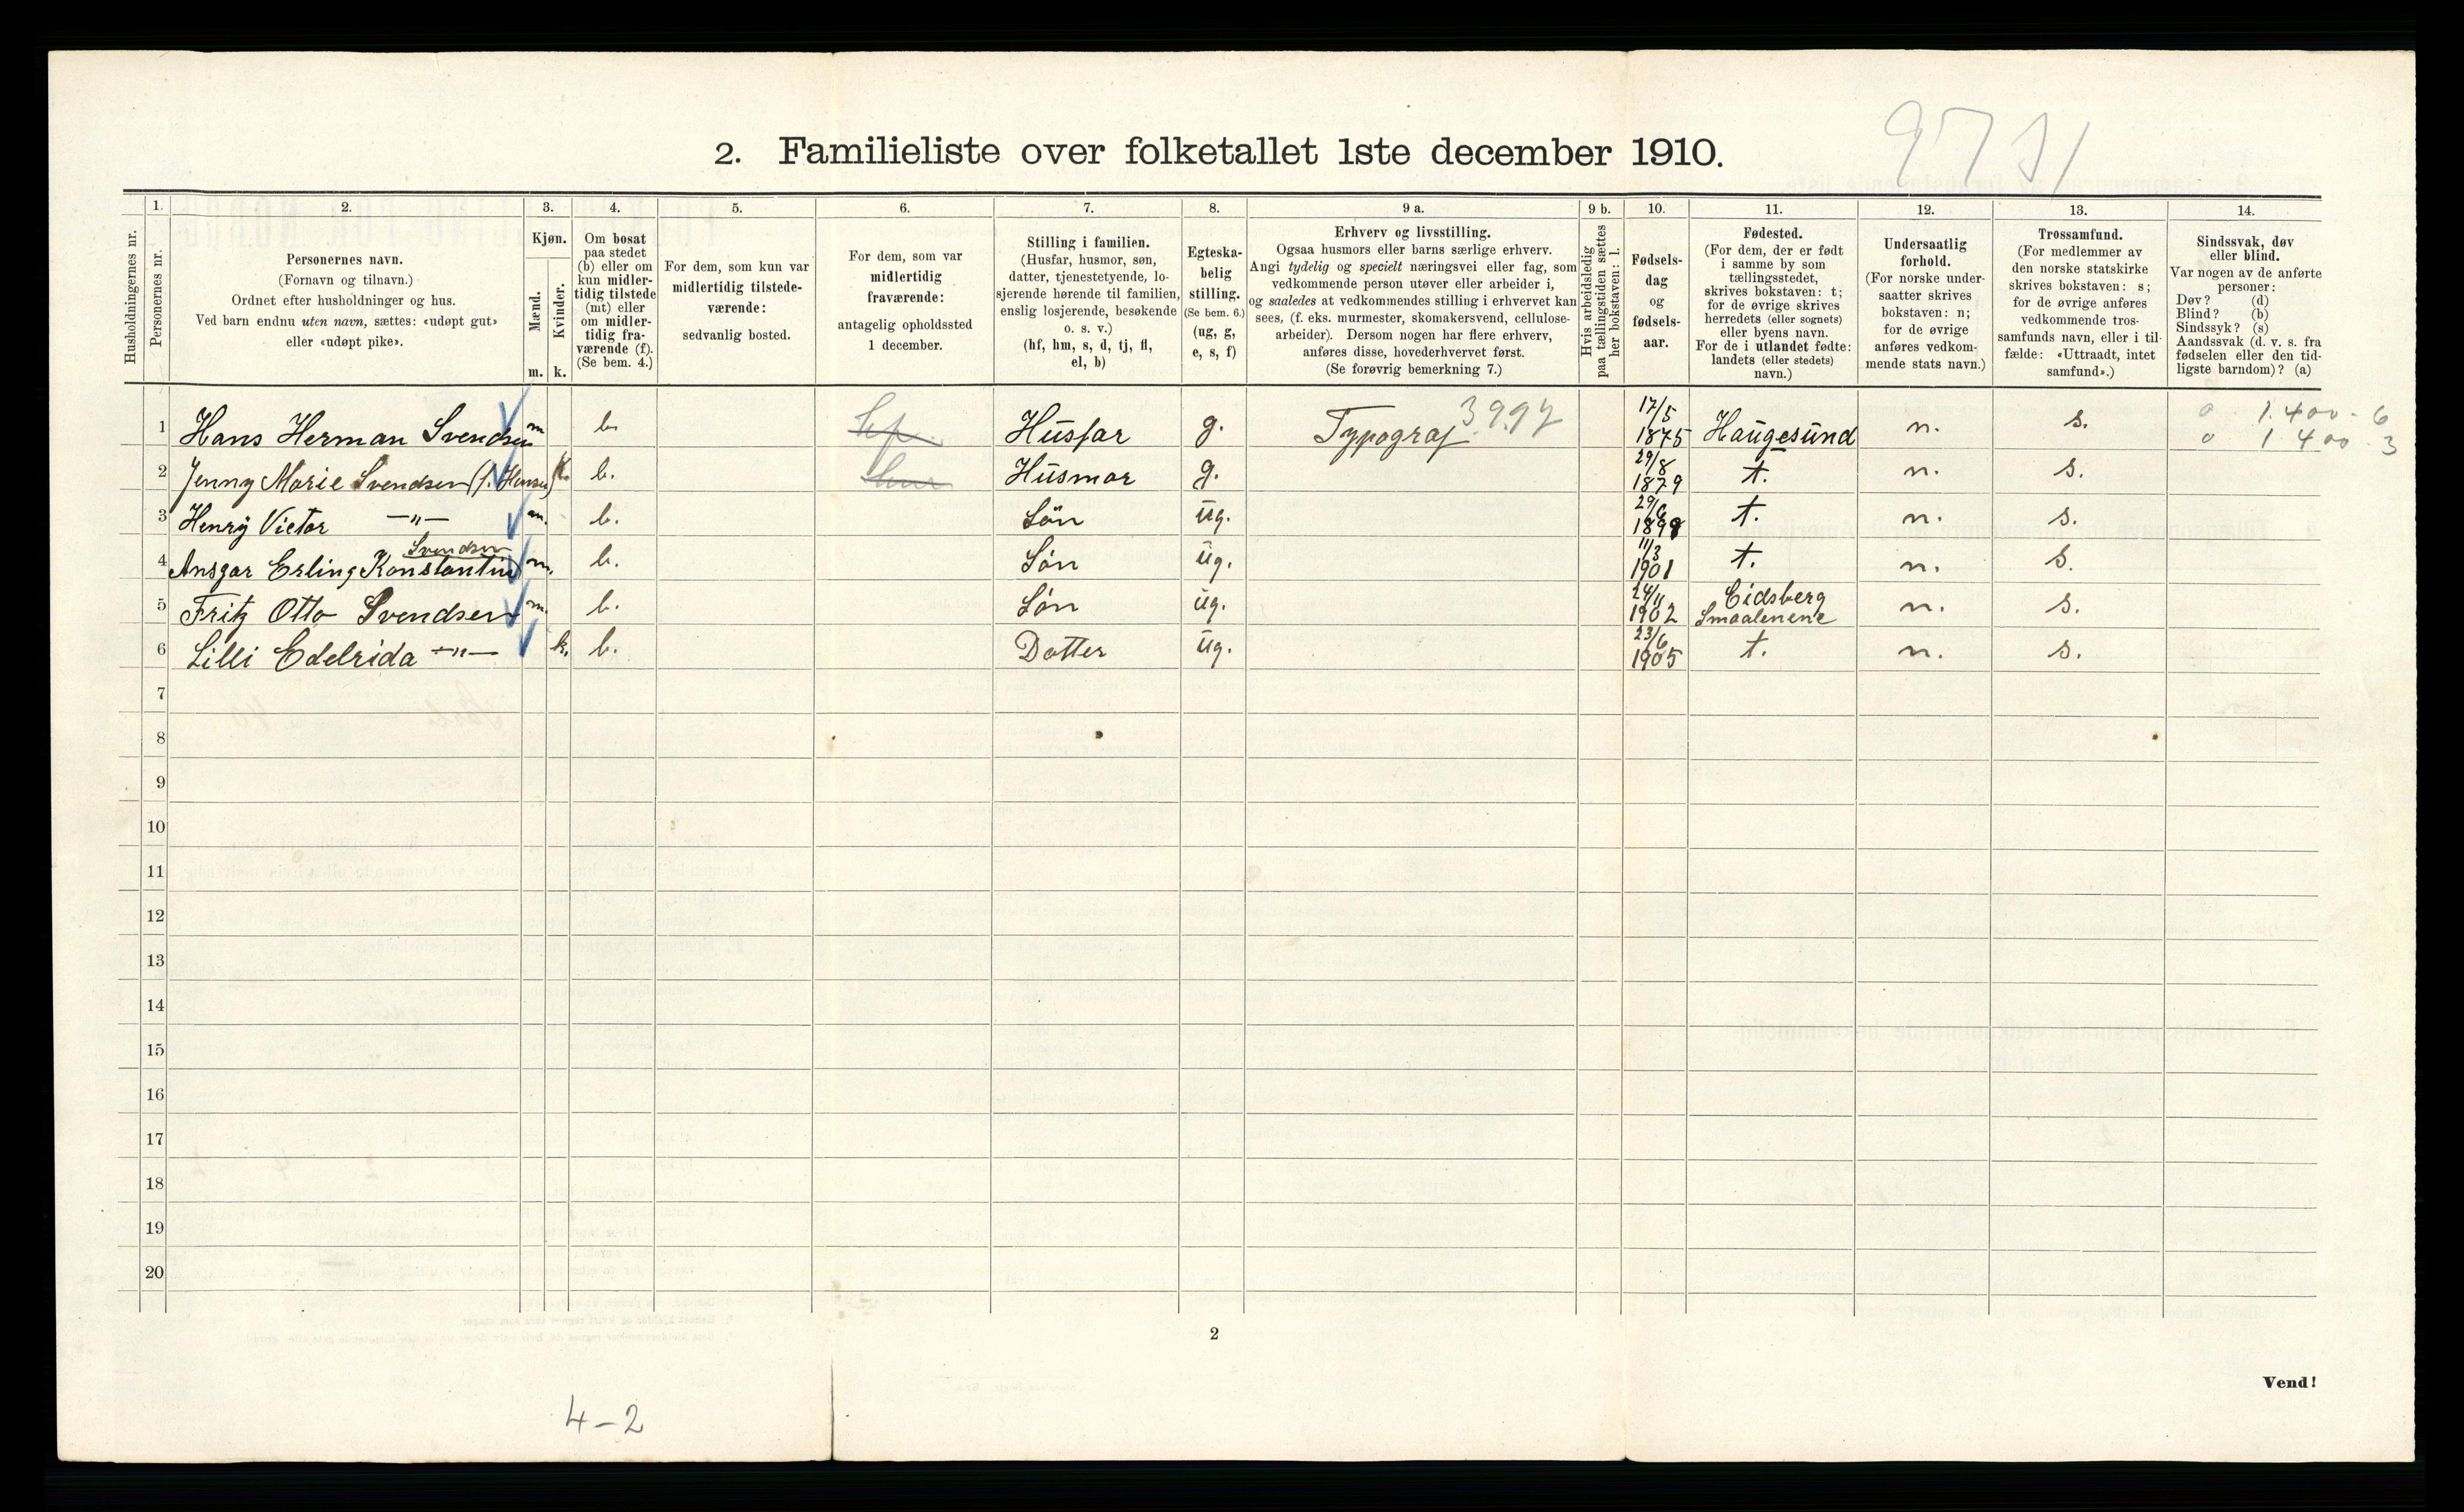 2. Familieliste over folketallet 1ste december 1910.
Husholdningernes nr.
1.
Personernes nr.
2.
Personernes navn.
(Fornavn og tilnavn.)
Ordnet efter husholdninger og hus.
Ved barn endnu uten navn, sættes: «udøpt gut»
eller «udøpt pike».
3.
Kjøn.
Mænd.
Kvinder.
m. k.
4.
Om bosat
paa stedet
(b) eller om
kun midler-
tidig tilstede
(mt) eller
om midler-
tidig fra-
værende (f).
(Se bem. 4.)
5.
For dem, som kun var
midlertidig tilstede-
værende:
sedvanlig bosted.
6.
For dem, som var
midlertidig
fraværende:
antagelig opholdssted
1 december.
7.
Stilling i familien.
(Husfar, husmor, søn,
datter, tjenestetyende, lo-
sjerende hørende til familien,
enslig losjerende, besøkende
o. s. v.)
(hf, hm, s, d, tj, fl,
el, b)
8.
Egteska-
belig
stilling.
(Se bem. 6.)
(ug, g,
e, s, f)
9 a.
Erhverv og livsstilling.
Ogsaa husmors eller barns særlige erhverv.
Angi tydelig og specielt næringsvei eller fag, som
vedkommende person utøver eller arbeider i,
og saaledes at vedkommendes stilling i erhvervet kan
sees, (f. eks. murmester, skomakersvend, cellulose-
arbeider). Dersom nogen har flere erhverv,
anføres disse, hovederhvervet først.
(Se forøvrig bemerkning 7.)
9 b.
Hvis arbeidsledig
paa tællingstiden sættes
her bokstaven: l.
10.
Fødsels-
dag
og
fødsels-
aar.
11.
Fødested.
(For dem, der er født
i samme by som
tællingsstedet,
skrives bokstaven: t;
for de øvrige skrives
herredets (eller sognets)
eller byens navn.
For de i utlandet fødte:
landets (eller stedets)
navn.)
12.
Undersaatlig
forhold.
(For norske under-
saatter skrives
bokstaven: n;
for de øvrige
anføres vedkom-
mende stats navn.)
13.
Trossamfund.
(For medlemmer av
den norske statskirke
skrives bokstaven: s;
for de øvrige anføres
vedkommende tros-
samfunds navn, eller i til-
fælde: «Uttraadt, intet
samfund».)
14.
Sindssvak, døv
eller blind.
Var nogen av de anførte
personer:
Døv? (d)
Blind? (b)
Sindssyk? (s)
Aandssvak (d. v. s. fra
fødselen eller den tid-
ligste barndom)? (a)
1 Hans Herman Svendsen m b. Husfar g. Typograf 3997 17/5 1875 Haugesund n. s. 0 1.400 - 6
0 1 400 - 3
2 Jenny Marie Svendsen (f. Hansen) k. b. Husmor g. 29/8 1879 t. n. s.
3 Henry Victor —"— m. b. Søn ug. 29/6 t. n. s.
4 Ansgar Erling Konstantin Svendsen m. b. Søn ug. 11/3 1901 t. n. s.
5 Fritz Otto Svendsen m. b. Søn ug. 24/11 1902 Eidsberg Smaalenene n. s.
6 Lilli Edelrida —"— k. b. Datter ug. 23/6 1905 t. n. s.
7
8
9
10
11
12
13
14
15
16
17
18
19
20
2
Vend!
4-2